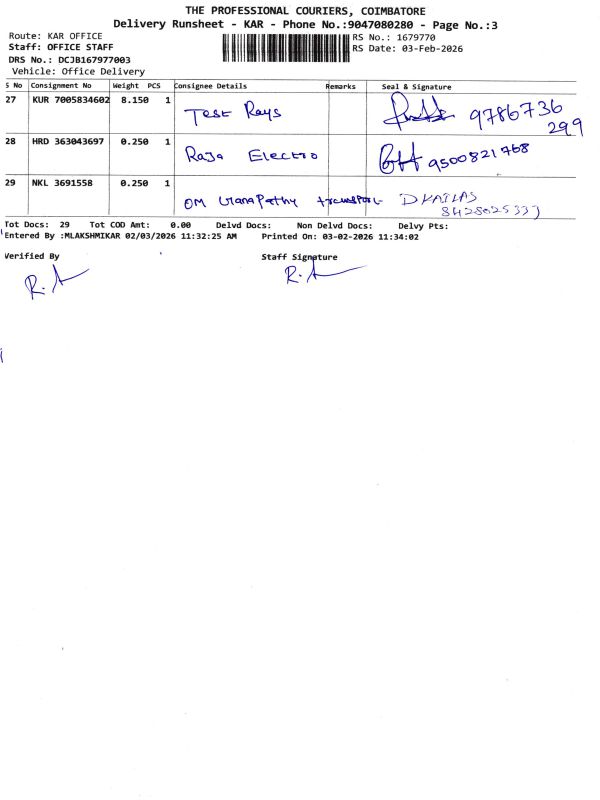 THE PROFESSIONAL COURIERS, COIMBATORE
Delivery Runsheet - KAR - Phone No.:9047080280 - Page No.:3
Route: KAR OFFICE
RS No.: 1679770
Staff: OFFICE STAFF
RS Date: 03-Feb-2026
DRS No.: DCJB167977003
Vehicle: Office Delivery
S No Consignment No Weight PCS Consignee Details Remarks Seal & Signature
27 KUR 7005834602 8.150 1 Test Rays 9786736
299
28 HRD 363043697 0.250 1 Raja Electro 9500821768
29 NKL 3691558 0.250 1 OM Ganapathy transport
Tot Docs: 29 Tot COD Amt: 0.00 Delvd Docs: Non Delvd Docs: Delvy Pts:
Entered By :MLAKSHMIKAR 02/03/2026 11:32:25 AM Printed On: 03-02-2026 11:34:02
Verified By Staff Signature